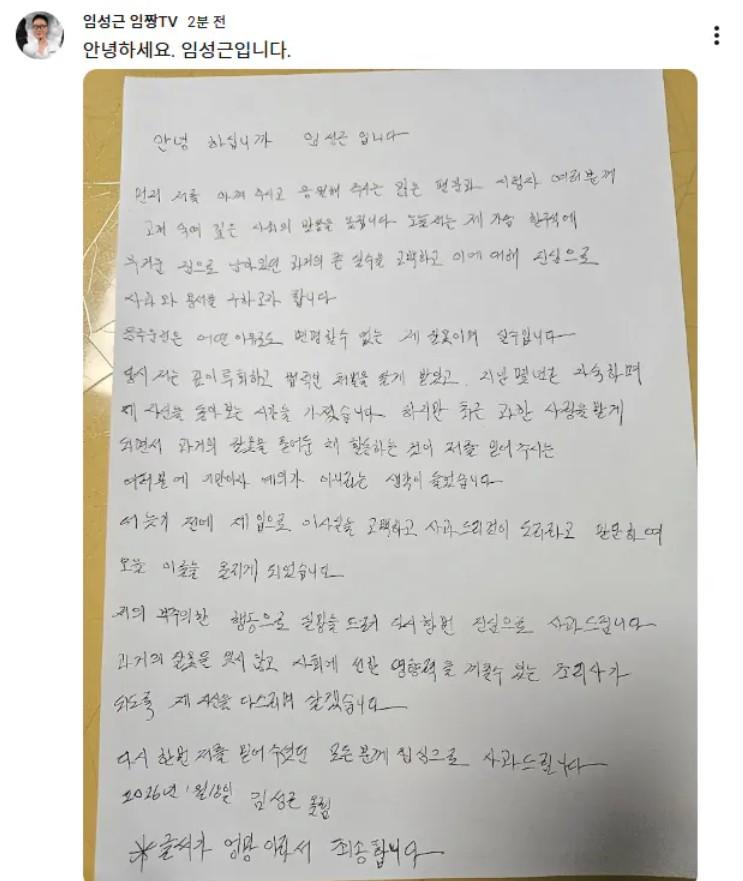 임성근 임짱TV 2분 전
안녕하세요. 임성근입니다.
안녕 하십니까 임성근 입니다
먼저 저를 아껴 주시고 응원해 주시는 많은 팬분과 시청자 여러분께
고개 숙여 깊은 사죄의 말씀을 올립니다 오늘 저는 제 가슴 한구석에
무거운 짐으로 남아있던 과거의 큰 실수를 고백하고 이에 대해 진심으로
사과와 용서를 구하고자 합니다
음주운전은 어떤 이유로도 변명할수 없는 제 잘못이며 실수입니다
당시 저는 깊이 후회하고 법적인 처벌을 달게 받았고. 지난 몇년은 자숙하며
제 자신을 돌아보는 시간을 가졌습니다 하지만 최근 과한 사랑을 받게
되면서 과거의 잘못을 묻어둔 채 활동하는 것이 저를 믿어 주시는
여러분에 기만이자 예의가 아니라는 생각이 들었습니다
더 늦기 전에 제 입으로 이사실을 고백하고 사과드리것이 도리라고 판단하여
오늘 이글을 올리게 되었습니다
저의 부주의한 행동으로 실망을 드려 다시한번 진심으로 사과드립니다
과거의 잘못을 잊지 않고 사회에 선한 영향력을 끼칠수 있는 조리사가
되도록 제 자신을 다스리며 살겠습니다
다시 한번 저를 믿어 주셨던 모든 분께 진심으로 사과드립니다
2026년 1월18일 임성근 올림
※글씨가 엉망 이라서 죄송합니다